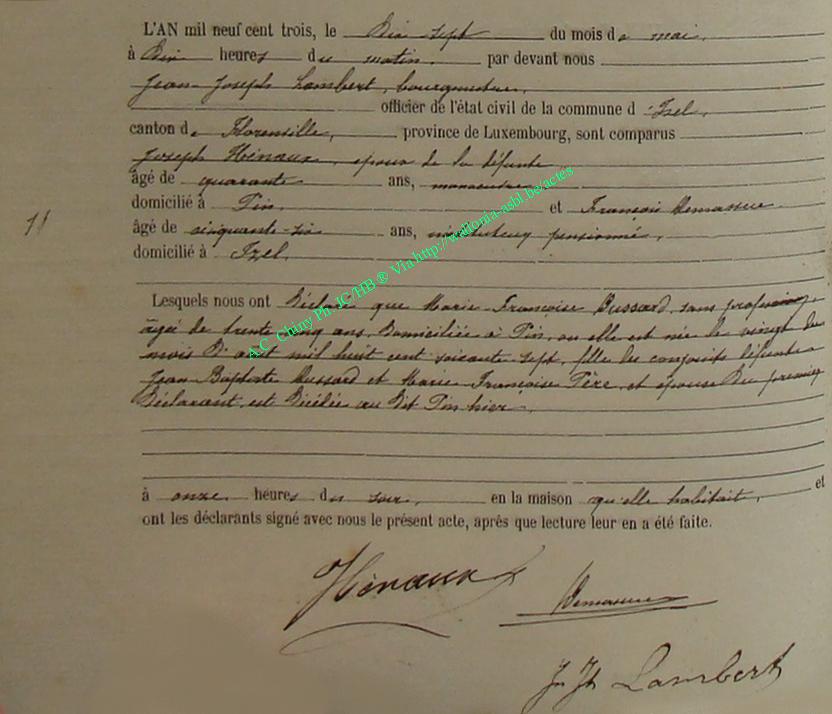 L'AN mil neuf cent trois, le Dix sept du mois de mai,
à Dix heures du matin, par devant nous
Jean-Joseph Lambert, bourgmestre,
officier de l'état civil de la commune d'Izel,
canton de Florenville, province de Luxembourg, sont comparus
Joseph Hénaux, époux de la défunte
âgé de quarante ans, manoeuvre,
domicilié à Pin, et François Demasure
âgé de cinquante-six ans, instituteur pensionné,
domicilié à Izel,
11
Lesquels nous ont Déclaré que Marie-Françoise Dussard, sans profession,
âgée de trente cinq ans, Domiciliée à Pin, où elle est née le vingt du
mois D'août mil huit cent soixante-sept, fille des conjoints défunts
Jean-Baptiste Dussard et Marie Françoise Père, et épouse Du premier
Déclarant, est Décédée au Dit Pin hier,
à onze heures du soir, en la maison qu'elle habitait, et
ont les déclarants signé avec nous le présent acte, après que lecture leur en a été faite.
Hénaux
Demasure
J. Jh Lambert
A.C Chiny Ph JC/HB ® Via http://wallonia-asbl.be/actes